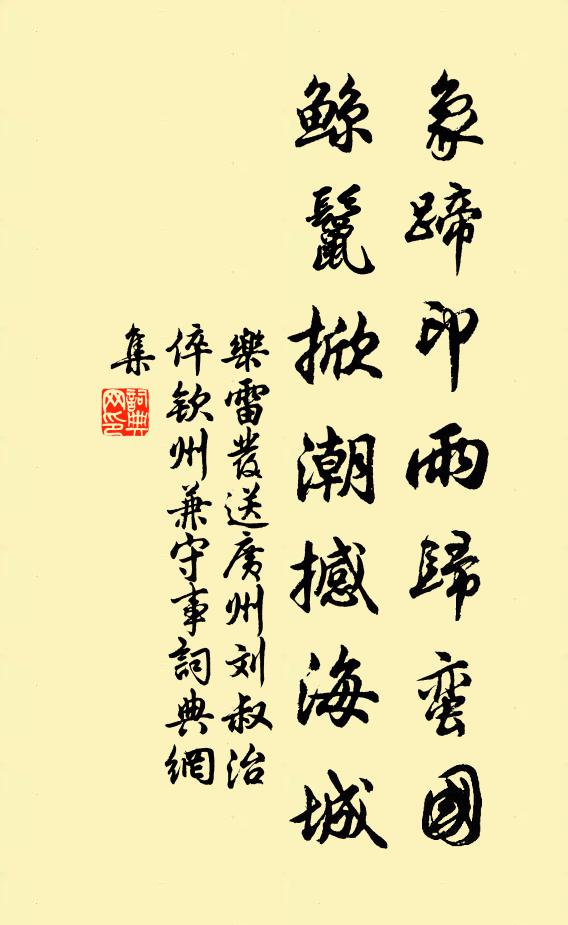 象蹄印雨歸蛮國
鲸鬣掀潮撼海城
樂雷發送廣州刘叔治
倅钦州兼守事詞典網
集
詞典網印